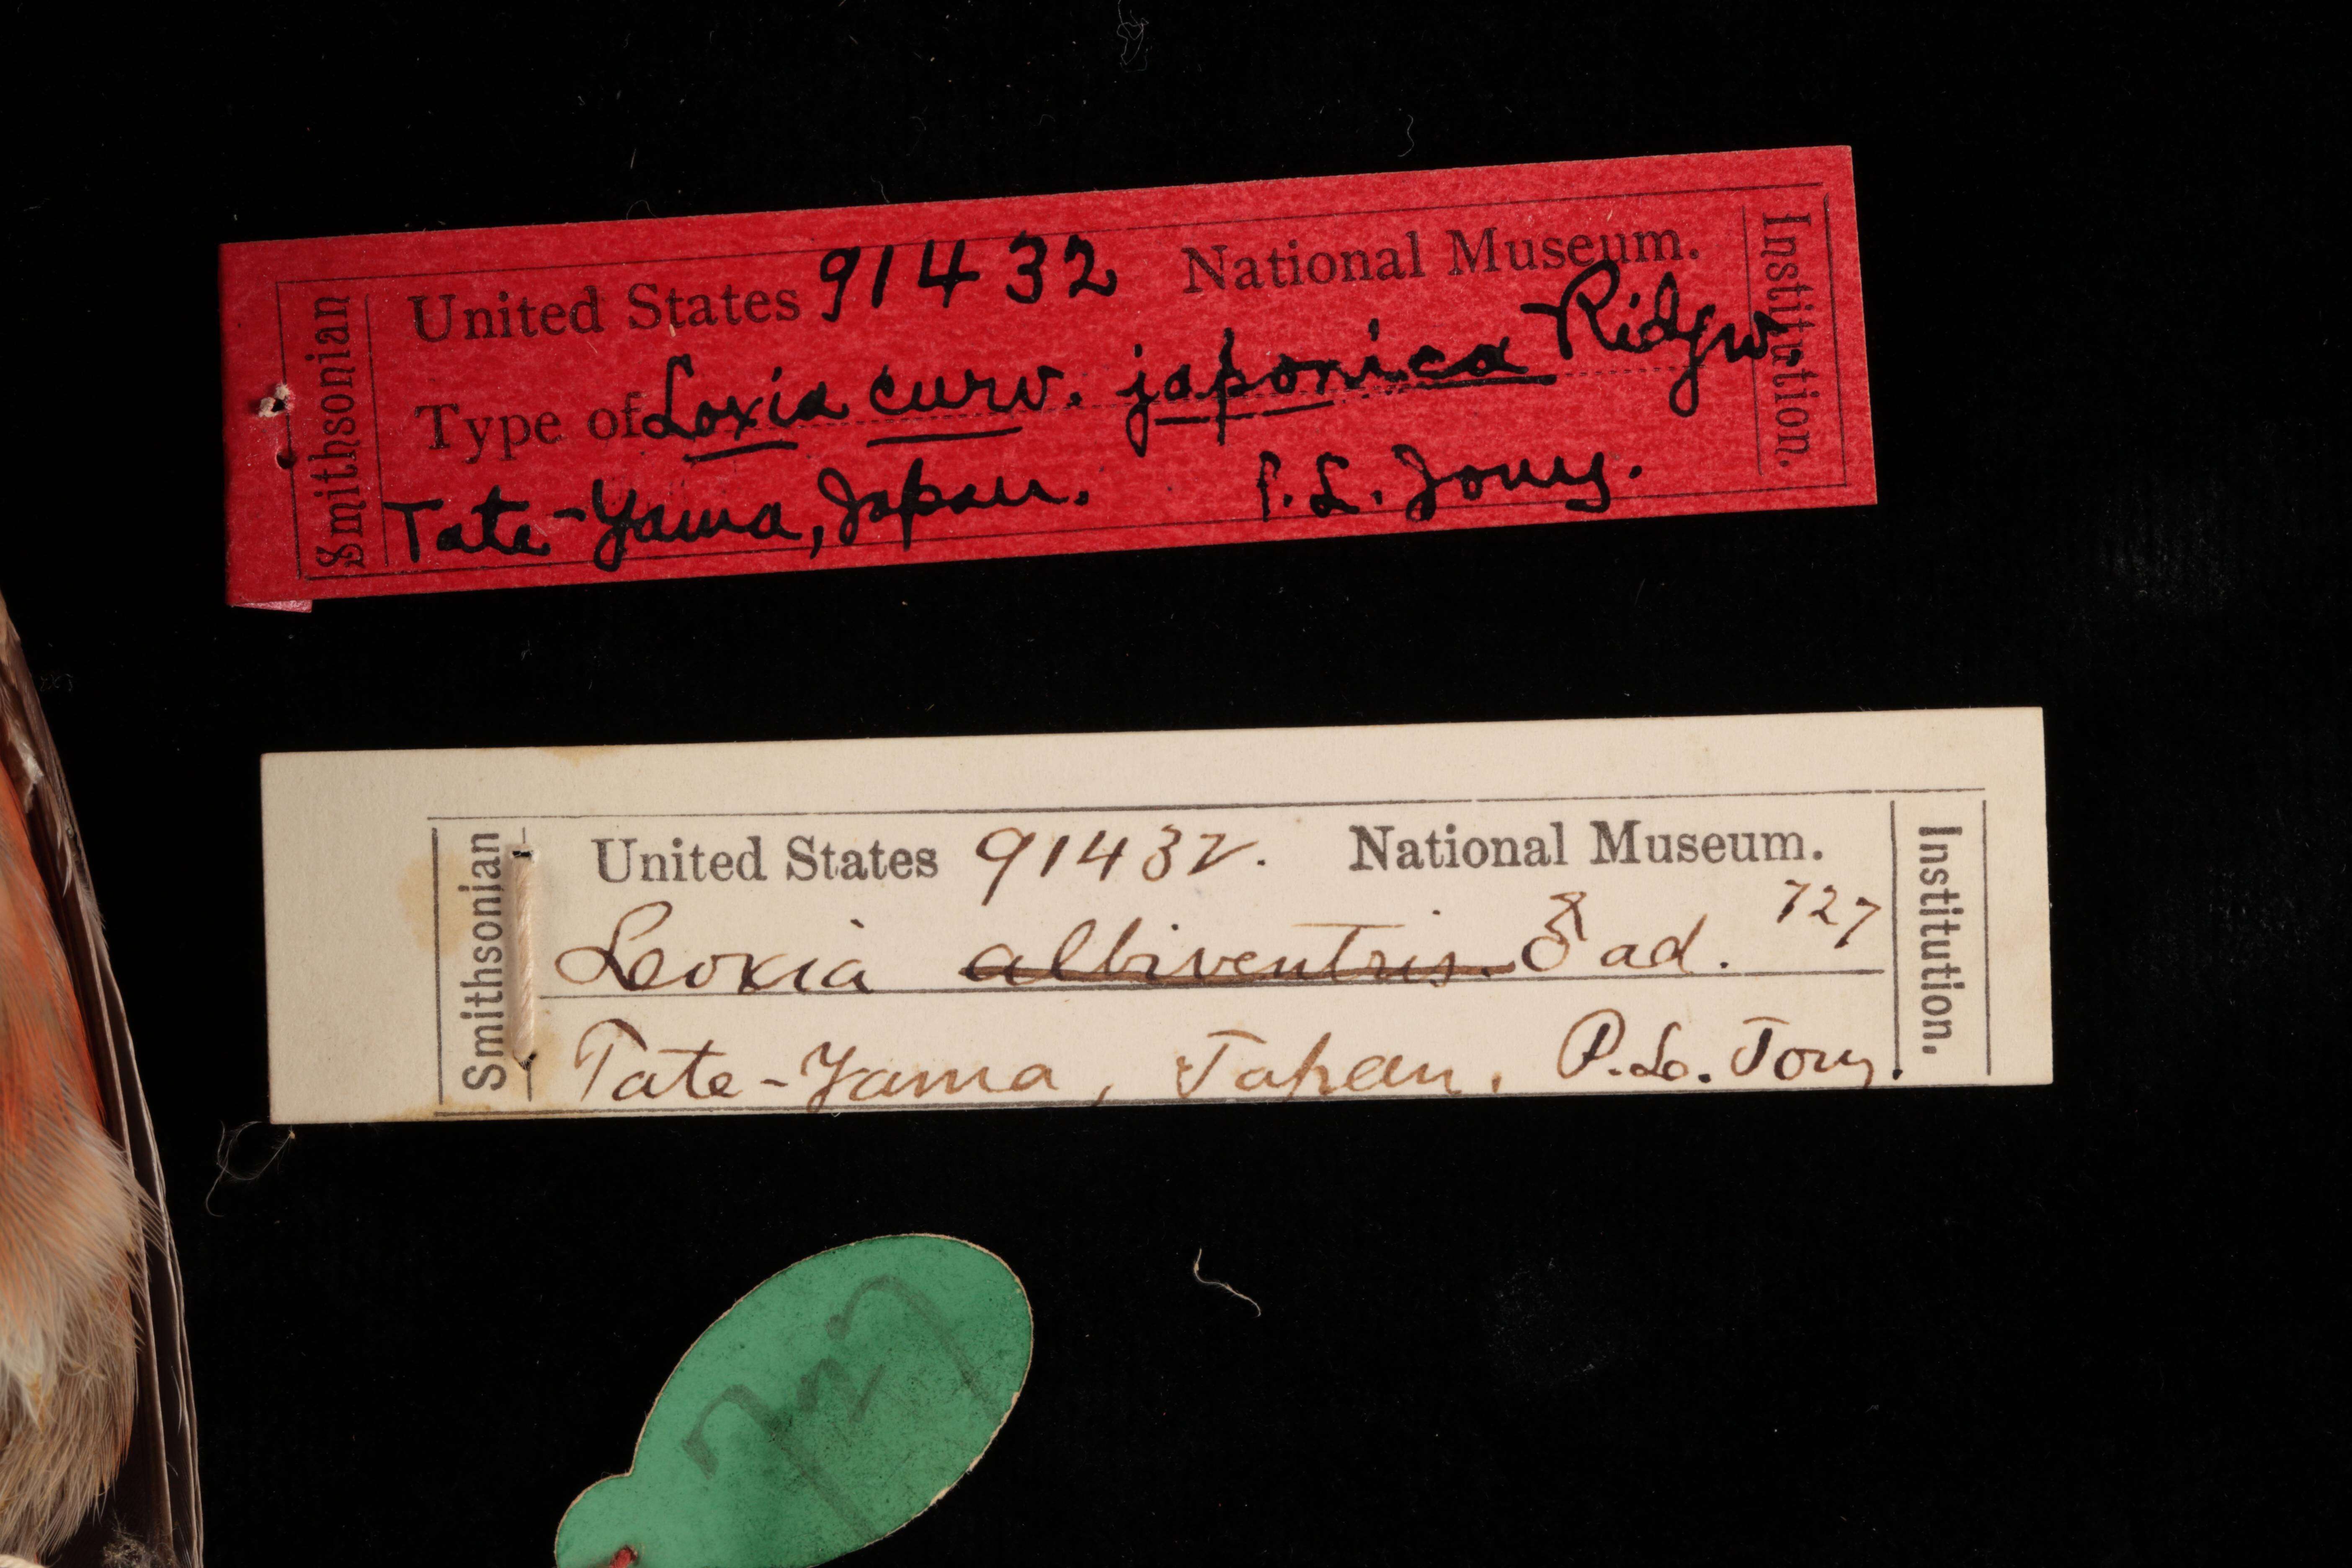 Smithsonian
United States 91432 National Museum.
Type of Loxia curv. japonica Ridgw.
Tate-Yama, Japan. P. L. Jouy.
Institution.
Smithsonian
United States 91432. National Museum.
Loxia albiventris. ♂ ad. 727
Tate-Yama, Japan. P. L. Jouy.
Institution.
727